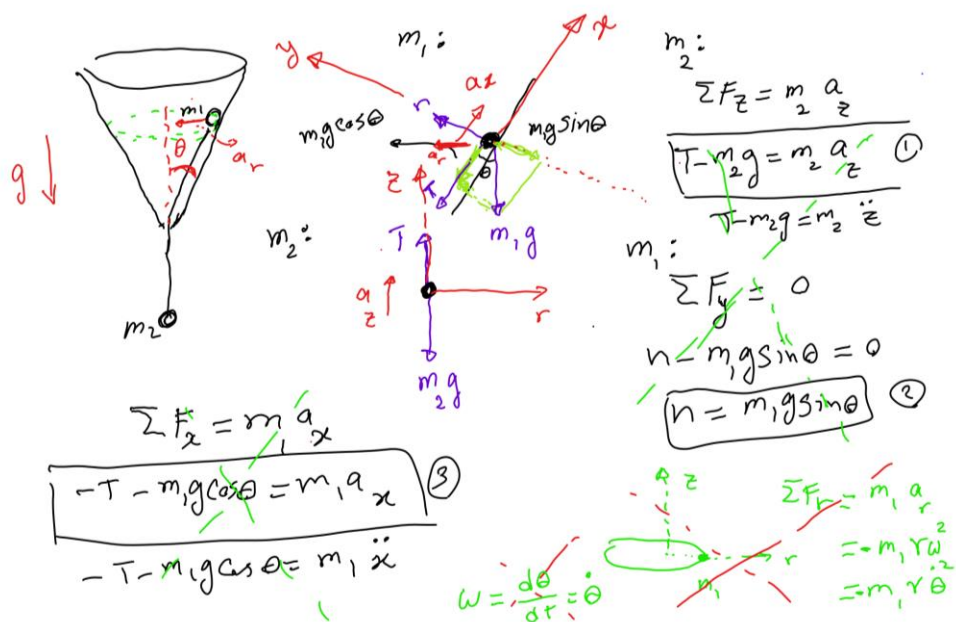 m₁
θ
a_r
g
m₂
m₁:
x
y
a_x
r
m₁gcosθ
m₁gsinθ
a_r
θ
z
T
m₁g
m₂:
T
a_z
r
m₂g
m₂:
ΣF_z = m₂ a_z
T - m₂g = m₂ a_z ①
T - m₂g = m₂ z̈
m₁:
ΣF_y = 0
n - m₁gsinθ = 0
n = m₁gsinθ ②
ΣF_x = m₁ a_x
-T - m₁gcosθ = m₁ a_x ③
-T - m₁gcosθ = m₁ ẍ
z
r
m₁
ω = dθ/dt = θ̇
ΣF_r = m₁ a_r
= -m₁ r ω²
= -m₁ r θ̇²